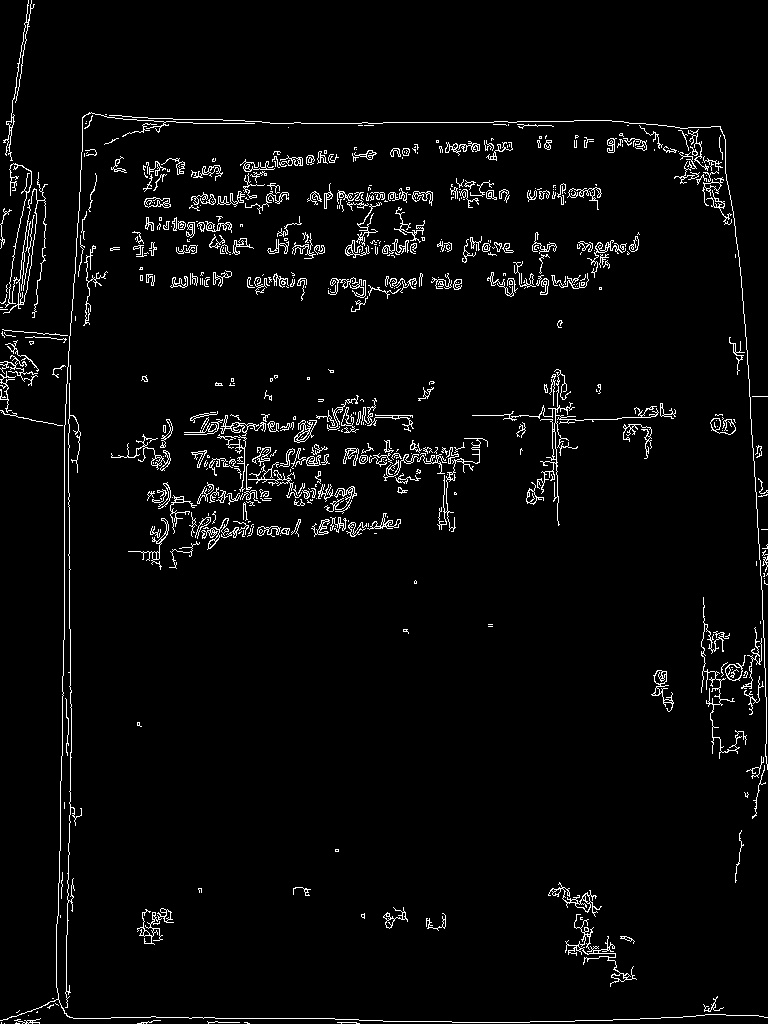 It is automatic i.e not iterative is it gives
one result an approximation in an uniform
histogram.
- It is at times desirable to have an method
in which certain grey level are highlighted.
1) Interviewing Skills
2) Time & Stress Management
3) Resume Writing
4) Professional Etiquetes